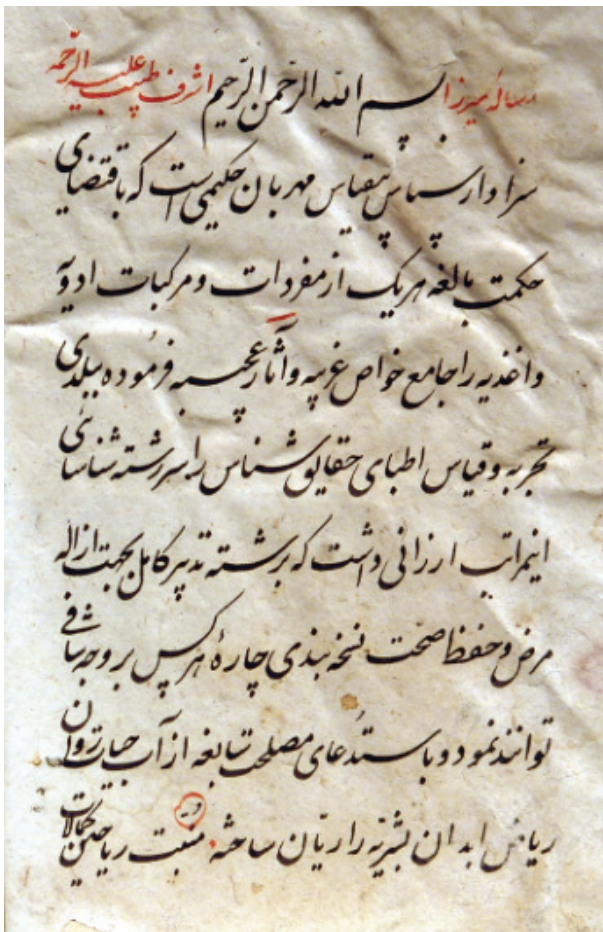 رسالهٔ میرزا بسم الله الرحمن الرحیم اشرف طبیب علیه الرحمه
سزاوار سپاس بیقیاس مهربان حکیمی است که باقتضای
حکمت بالغه هر یک از مفردات و مرکبات ادویه
واغذیه را جامع خواص غریبه و آثار عجیبه فرموده ببلدی
تجربه و قیاس اطبای حقایق شناس را سررشته شناسائی
اینمراتب ارزانی داشت که برشته تدبیر کامل بجهت ازاله
مرض و حفظ صحت نسخه بندی چارهٔ هر کس بر وجه شافی
توانند نمود و باستدعای مصلحت شایعه از آب حیات روان
ریاض ابدان بشریه را ریان ساخته منبت ریاحین کمالات